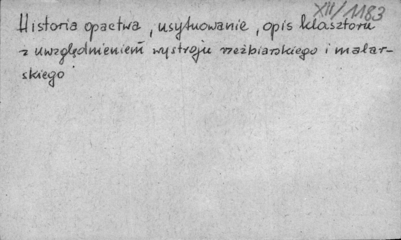 XII/1183
Historia opactwa, usytuowanie, opis klasztoru
z uwzględnieniem wystroju rzeźbiarskiego i malar-
skiego